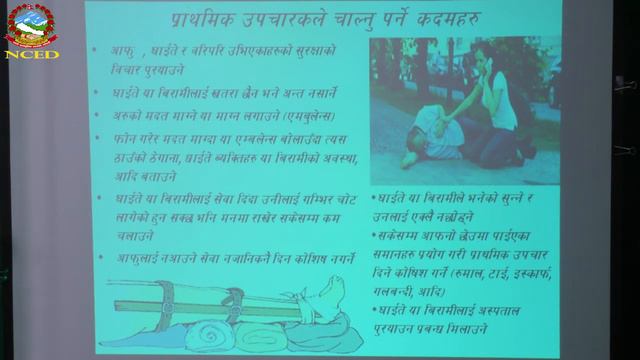 NCED
प्राथमिक उपचारकले चाल्नु पर्ने कदमहरु
• आफु , घाईते र वरिपरि उभिएकाहरुको सुरक्षाको
विचार पुरयाउने
• घाईते या बिरामीलाई खतरा छैन भने अन्त नसार्ने
• अरुको मदत माग्ने या माग्न लगाउने (एमबुलेन्स)
• फोन गरेर मदत माग्दा या एम्बलेन्स बोलाउँदा त्यस
ठाउँको ठेगाना, घाईते ब्यक्तिहरु या बिरामीको अवस्था,
आदि बताउने
• घाईते या बिरामीलाई सेवा दिदा उनीलाई गम्भिर चोट
लागेको हुन सक्छ भनि मनमा राखेर सकेसम्म कम
चलाउने
• आफुलाई नआउने सेवा नजानिकनै दिन कोशिष नगर्ने
• घाईते या बिरामीले भनेको सुन्ने र
उनलाई एक्लै नछोड्ने
• सकेसम्म आफनो छेउमा पाईएका
समानहरु प्रयोग गरी प्राथमिक उपचार
दिने कोषिश गर्ने (रुमाल, टाई, इस्कार्फ,
गलबन्दी, आदि)
• घाईते या बिरामीलाई अस्पताल
पुरयाउन प्रबन्ध मिलाउने